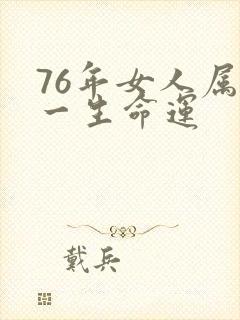 76年女人属
一生命运
戴兵